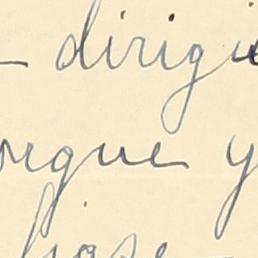 - dirigi
orque y